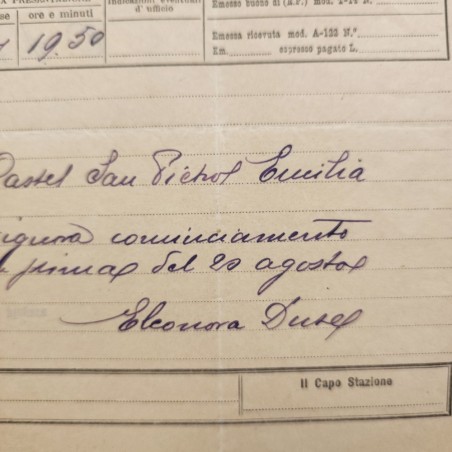 A PRESENTAZIONE
ore e minuti
Indicazioni eventuali
d' ufficio
Emesso buono di (A.P.) mod. I-14 N.
19.50
Emessa ricevuta mod. A-122 N.°
Em. espresso pagato L.
Castel San Pietro Emilia
cominciamento
prima del 20 agosto
Eleonora Duse
Il Capo Stazione